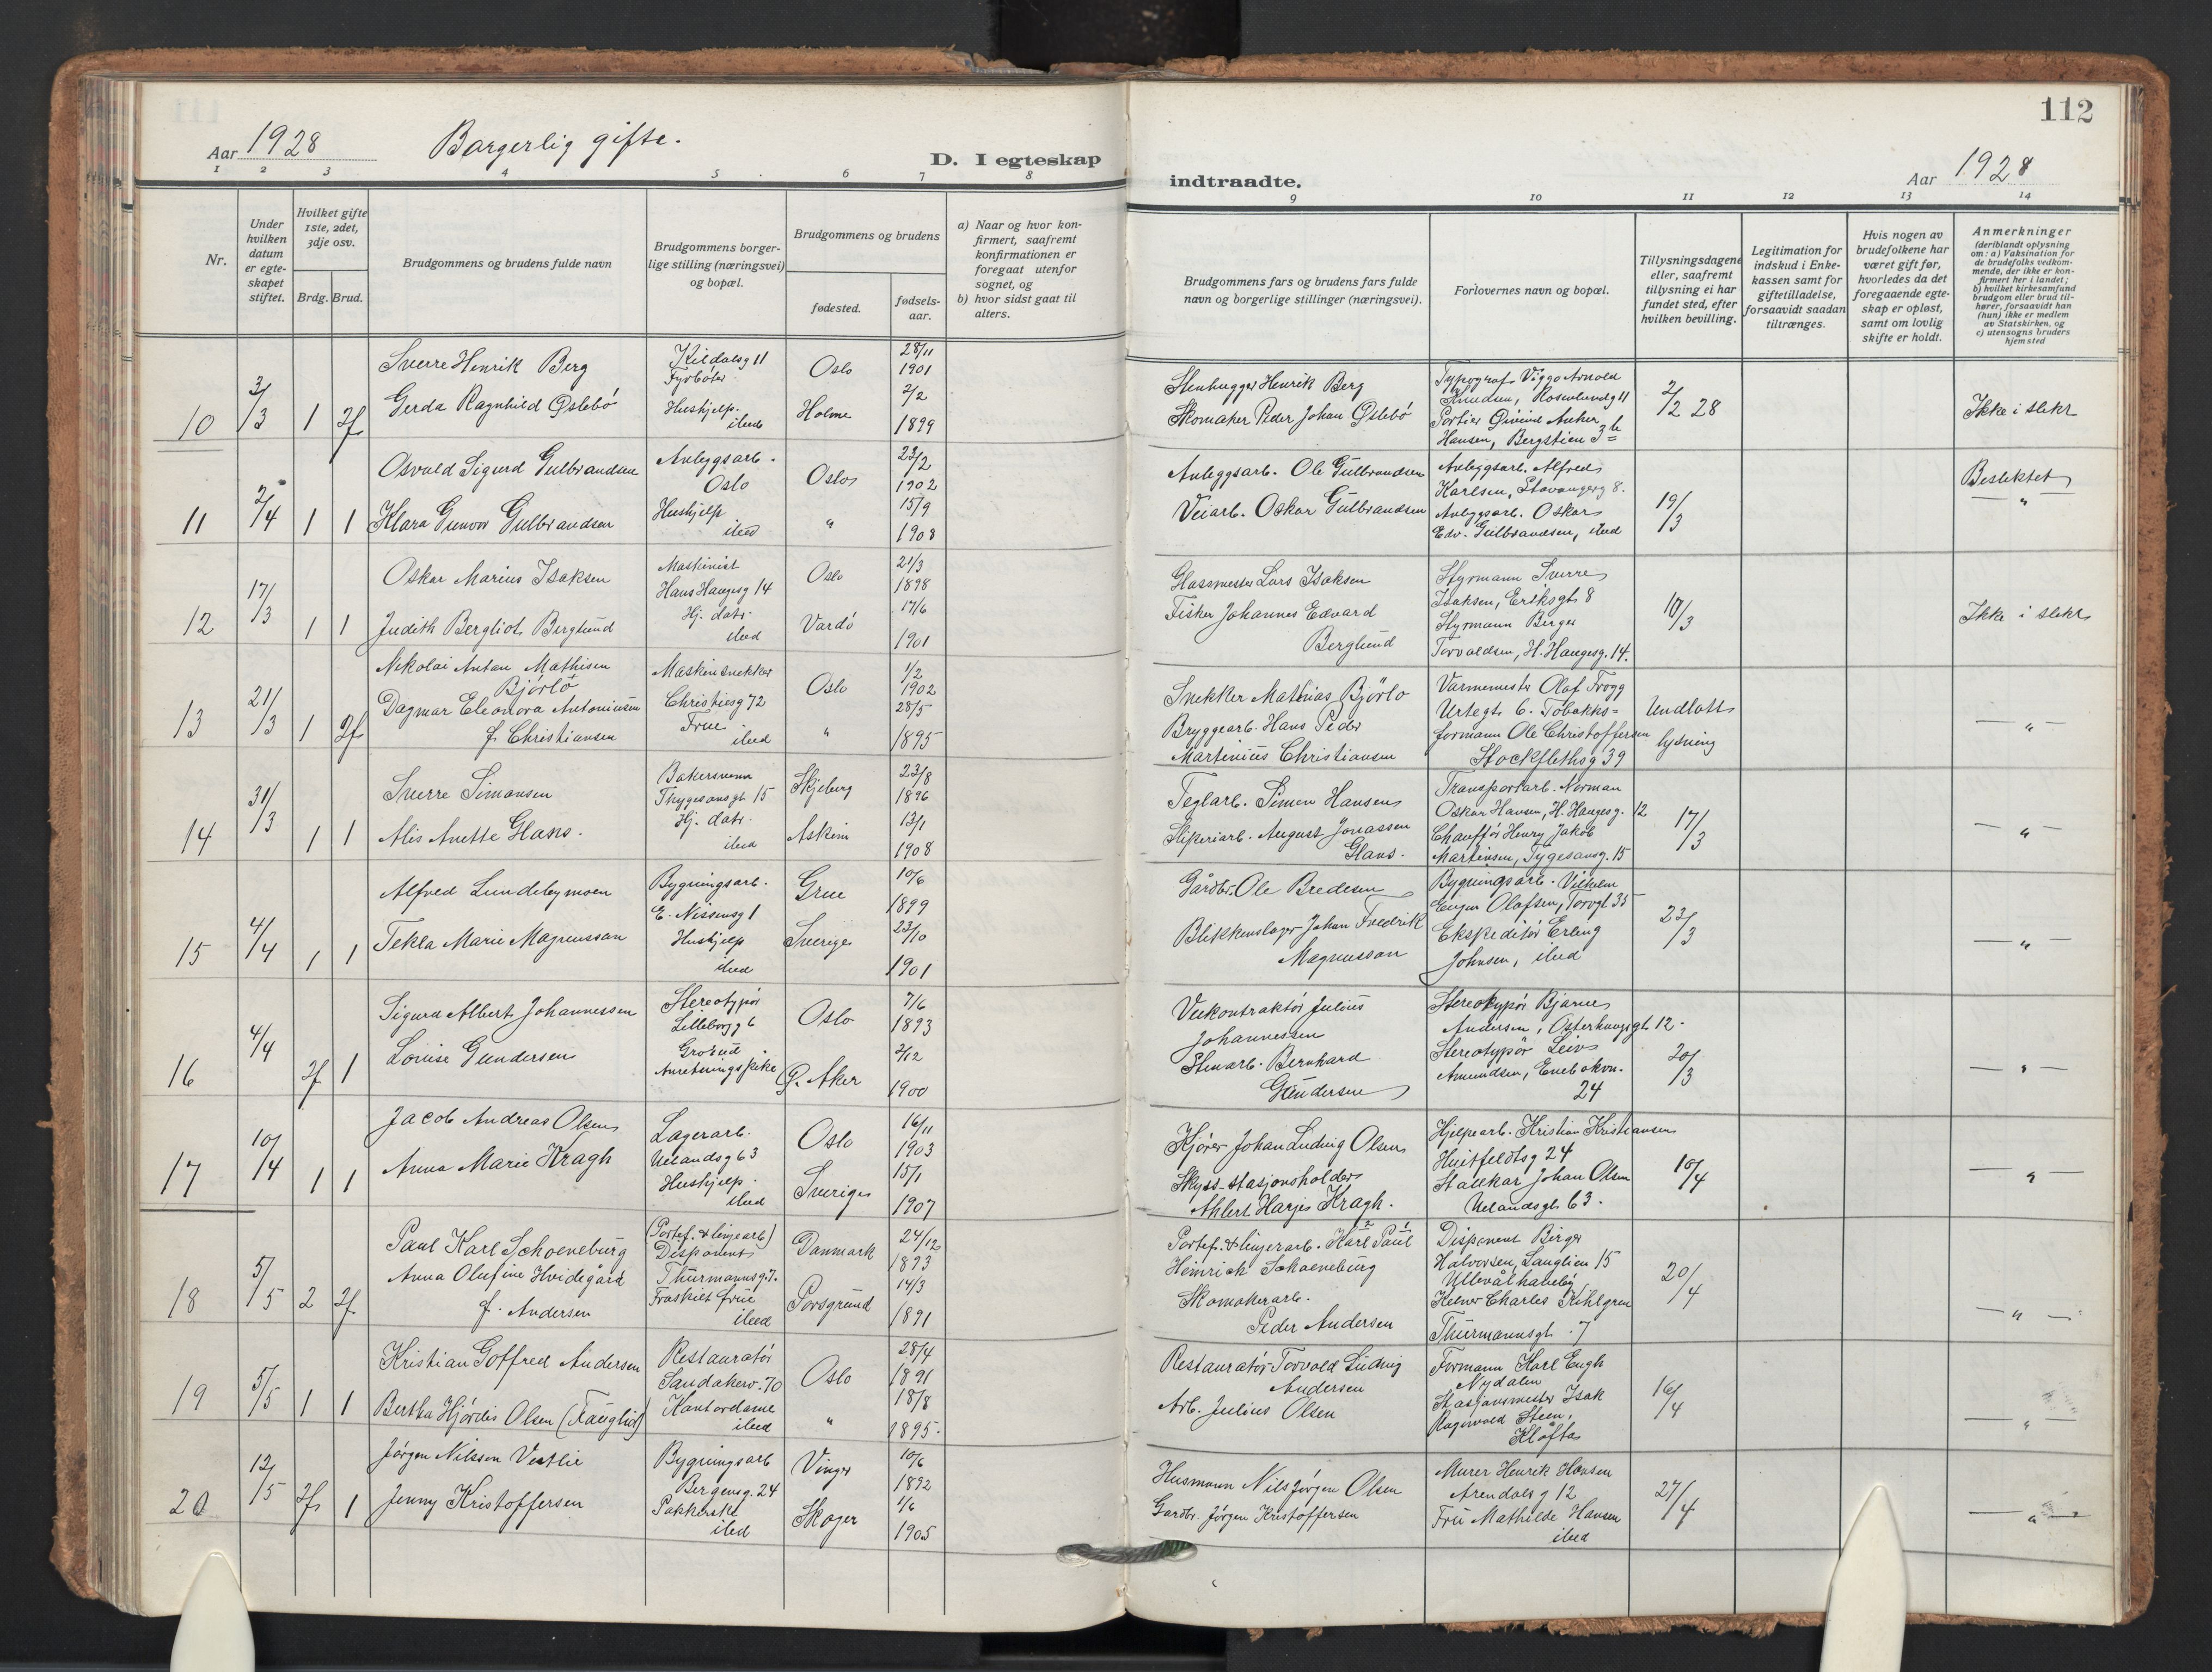 112
Aar 1928 Borgerlig gifte. D. I egteskap
indtraadte. Aar 1928
1 2 3 4 5 6 7 8
9 10 11 12 13 14
Nr.
Under hvilken datum er egteskapet stiftet.
Hvilket gifte 1ste, 2det, 3dje osv.
Brdg. Brud.
Brudgommens og brudens fulde navn
Brudgommens borgerlige stilling (næringsvei) og bopæl.
Brudgommens og brudens
fødested.
fødselsaar.
a) Naar og hvor konfirmert, saafremt konfirmationen er foregaat utenfor sognet, og
b) hvor sidst gaat til alters.
Brudgommens fars og brudens fars fulde navn og borgerlige stillinger (næringsvei).
Forlovernes navn og bopæl.
Tillysningsdagene eller, saafremt tillysning ei har fundet sted, efter hvilken bevilling.
Legitimation for indskud i Enkekassen samt for giftetilladelse, forsaavidt saadan tiltrænges.
Hvis nogen av brudefolkene har været gift før, hvorledes da det foregaaende egteskap er opløst, samt om lovlig skifte er holdt.
Anmerkninger
(deriblandt oplysning om: a) Vaksination for de brudefolks vedkommende, der ikke er konfirmert her i landet; b) hvilket kirkesamfund brudgom eller brud tilhører, forsaavidt han (hun) ikke er medlem av Statskirken, og c) utensogns bruders hjemsted
10 3/3 1 2f
Sverre Henrik Berg
Gerda Ragnhild Øslebö
Kildalsg 11
Fyrböter
Hushjelp.
ibid
Oslo
Holme
28/11
1901
2/2
1899
Stenhugger Henrik Berg
Skomaker Peder Johan Øslebö
Typograf Viggo Arnold
Knudsen, Rosenlundg 11
Portier Øivind Anker
Hansen, Bergstien 3 b
2/2 28
Ikke i slekt
11 2/4 1 1
Osvald Sigurd Gulbrandsen
Klara Gunvor Gulbrandsen
Anleggsarb.
Oslo
Hushjelp
ibid
Oslo
"
23/2
1902
15/9
1908
Anleggsarb. Ole Gulbrandsen
Veiarb. Oskar Gulbrandsen
Anleggsarb. Alfred
Karlsen, Stavangerg 8.
Anleggsarb. Oskar
Edv. Gulbrandsen, ibid
19/3
Beslektet
— " —
12 17/3 1 1
Oskar Marius Isaksen
Judith Bergliot Berglund
Maskinist
Hans Haugesg 14
Hj. datr.
ibid
Oslo
Vardö
21/3
1898
17/6
1901
Glassmester Lars Isaksen
Fisker Johannes Edvard
Berglund
Styrmann Sverre
Isaksen, Eriksgt 8
Styrmann Birger
Torvaldsen, H. Haugesg. 14.
10/3
Ikke i slekt
13 21/3 1 2f
Nikolai Anton Mathisen
Björlö
Dagmar Eleonora Antoniusen
f. Christiansen
Maskinsnekker
Christiesg 72
Frue
ibid
Oslo
"
1/2
1902
28/5
1895
Snekker Mathias Björlo
Bryggearb. Hans Peder
Martinius Christiansen
Varmemester Olaf Frogg
Urtegt 6. Tobakks=
formann Ole Christoffersen
Stockflethsg 39
Undlatt
lysning
— " —
14 31/3 1 1
Sverre Simonsen
Alis Anette Glans.
Bakersvenn
Thygesonsgt 15
Hj. datr.
ibid
Skjeberg
Askim
23/8
1896
13/1
1908
Teglarb. Simen Hansen
Sliperiarb. August Jonassen
Glans.
Transportarb. Norman
Oskar Hansen, H. Haugesg. 12
Chauffør Henry Jakob
Martinsen, Tygesonsg. 15
17/3
— " —
15 4/4 1 1
Alfred Lundebymoen
Tekla Marie Magnusson
Bygningsarb.
E. Nissensg 1
Hushjelp
ibid
Grue
Sverige
10/6
1899
23/10
1901
Gårdbr. Ole Bredesen
Blikkenslager Johan Fredrik
Magnusson
Bygningsarb. Vilhelm
Eugen Olafsen, Torvgt 35
Ekspeditör Erling
Johnsen, ibid
23/3
— " —
16 4/4 2f 1
Sigurd Albert Johannessen
Louise Gundersen
Stereotypör
Lilleborgg 6
Grorud
Anretningspike
Oslo
Ø. Aker
7/6
1893
2/12
1900
Veikontraktör Julius
Johannessen
Stenarb. Bernhard
Gundersen
Stereotypör Bjarne
Andersen, Østerhausgt 12.
Stereotypör Leiv
Amundsen, Enebakvn.
24
20/3
— " —
17 10/4 1 1
Jacob Andreas Olsen
Anna Marie Kragh
Lagerarb.
Uelandsg 63
Hushjelp.
ibid
Oslo
Sverige
16/11
1903
15/1
1907
Kjörer Johan Ludvig Olsen
Skyss-stasjonsholder
Ahlert Harjes Kragh.
Hjelpearb. Kristian Kristiansen
Huitfeldtsg 24
Stallkar Johan Olsen
Uelandsgt 63.
10/4
— " —
18 5/5 2 2f
Paul Karl Schoeneburg
Anna Olufine Hvidegård
f. Andersen
(Portef. & linjearb)
Disponent
Thurmannsg. 7.
Fraskilt frue
ibid
Danmark
Porsgrund
24/12
1893
14/3
1891
Portef. & linjearb. Karl Paul
Heinrich Schoeneburg
Skomakerarb.
Peder Andersen
Disponent Birger
Halvorsen, Langlien 15
Ullevål haveby
Kelner Charles Kihlgren
Thurmannsgt. 7
20/4
— " —
19 5/5 1 1
Kristian Goffred Andersen
Bertha Hjördis Olsen (Fauglid)
Restauratör
Sandakerv. 70
Kontordame
ibid
Oslo
"
28/4
1891
18/8
1895.
Restauratör Torvald Ludvig
Andersen
Arb. Julius Olsen
Formann Karl Engh
Nydalen
Stasjonsmester Isak
Ragnvald Steen,
Kløfta
16/4
— " —
20 12/5 2f 1
Jörgen Nilssen Vestlie
Jenny Kristoffersen
Bygningsarb
Bergensg. 24
Pakkerske
ibid
Vinger
Skoger
10/6
1892
1/6
1905
Husmann Nils Jörgen Olsen
Gardbr. Jörgen Kristoffersen
Murer Henrik Hansen
Arendalsg 12
Fru Mathilde Hansen
ibid
27/4
— " —